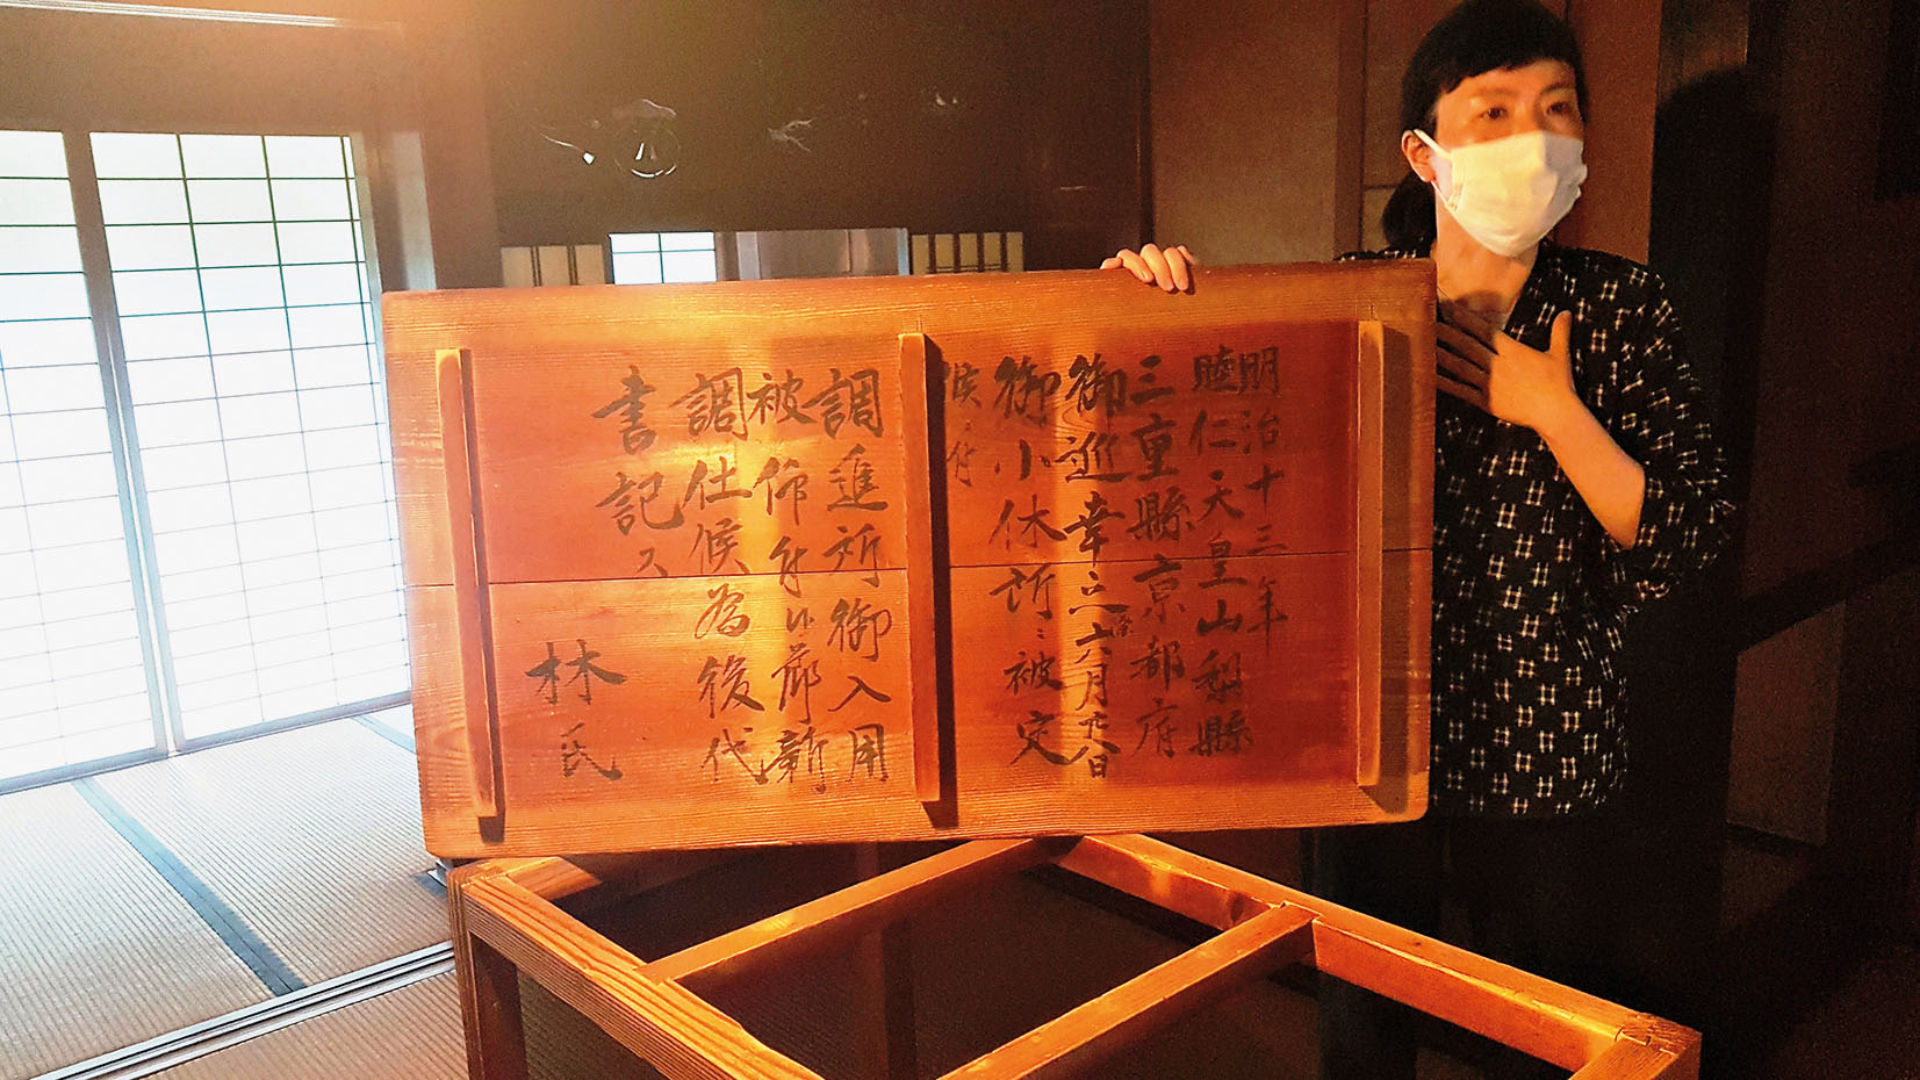 明治十三年
睦仁天皇山梨縣
三重縣京都府
御巡幸之際六月廿八日
御小休所ニ被定
候ニ付
調進所御入用
被仰付
調仕候為後代
書記ス
林氏